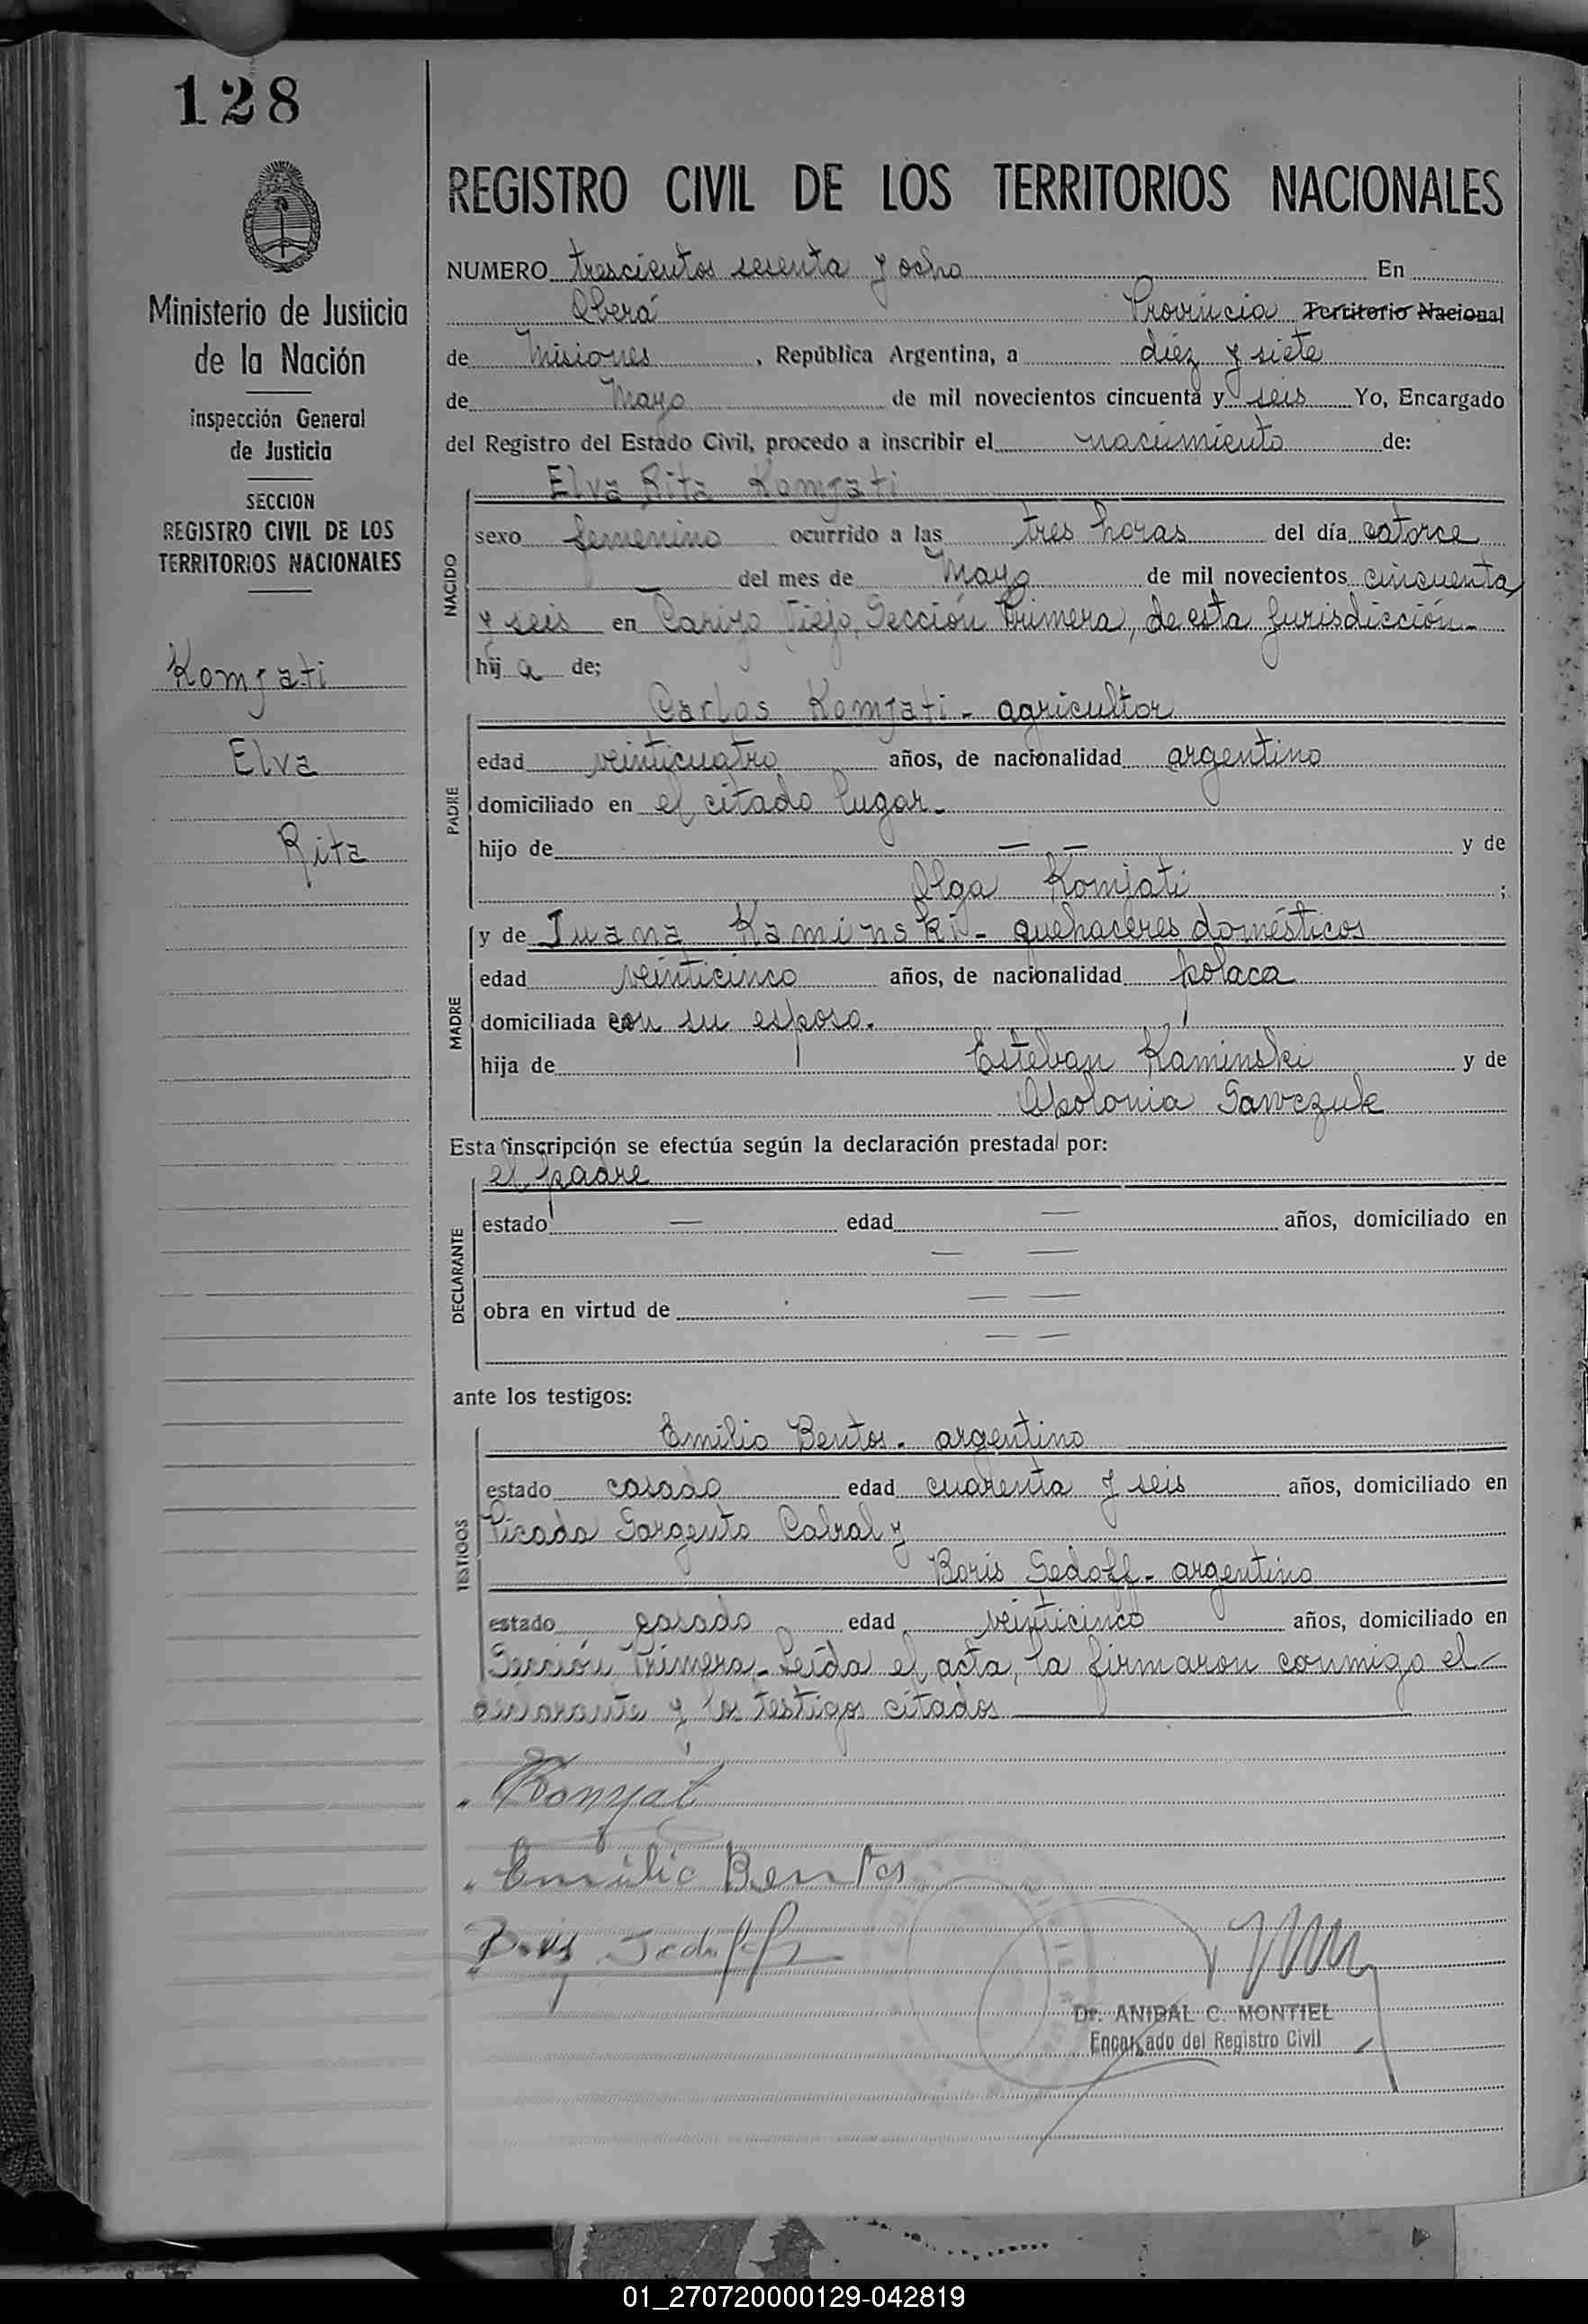 128
Ministerio de Justicia
de la Nación
Inspección General
de Justicia
SECCION
REGISTRO CIVIL DE LOS
TERRITORIOS NACIONALES
Komjati
Elva
Rita
REGISTRO CIVIL DE LOS TERRITORIOS NACIONALES
NUMERO trescientos sesenta y ocho En
Oberá Provincia Territorio Nacional
de Misiones, República Argentina, a diez y siete
de Mayo de mil novecientos cincuenta y seis Yo, Encargado
del Registro del Estado Civil, procedo a inscribir el nacimiento de:
Elva Rita Komjati
NACIDO
sexo femenino ocurrido a las tres horas del día catorce
del mes de Mayo de mil novecientos cincuenta
y seis en Viejo, Sección Primera, de esta Jurisdicción-
hij a de;
Carlos Komjati - agricultor
PADRE
edad veinticuatro años, de nacionalidad argentino
domiciliado en el citado lugar-
hijo de — — y de
Olga Komjati ;
y de Juana Kaminski - quehaceres domésticos
MADRE
edad veinticinco años, de nacionalidad polaca
domiciliada con su esposo.
hija de Esteban Kaminski y de
Apolonia Sawczuk
Esta inscripción se efectúa según la declaración prestada por:
el padre
DECLARANTE
estado — edad — años, domiciliado en
— —
obra en virtud de — —
— —
ante los testigos:
Emilio Bentos - argentino
TESTIGOS
estado casado edad cuarenta y seis años, domiciliado en
Picada Sargento Cabral y
Boris Sedoff - argentino
estado casado edad veinticinco años, domiciliado en
Sección Primera - Leída el acta, la firmaron conmigo el-
declarante y los testigos citados
Komyati
Emilio Bentos
Boris Sedoff
Dr. ANIBAL C. MONTIEL
Encargado del Registro Civil
01_270720000129-042819